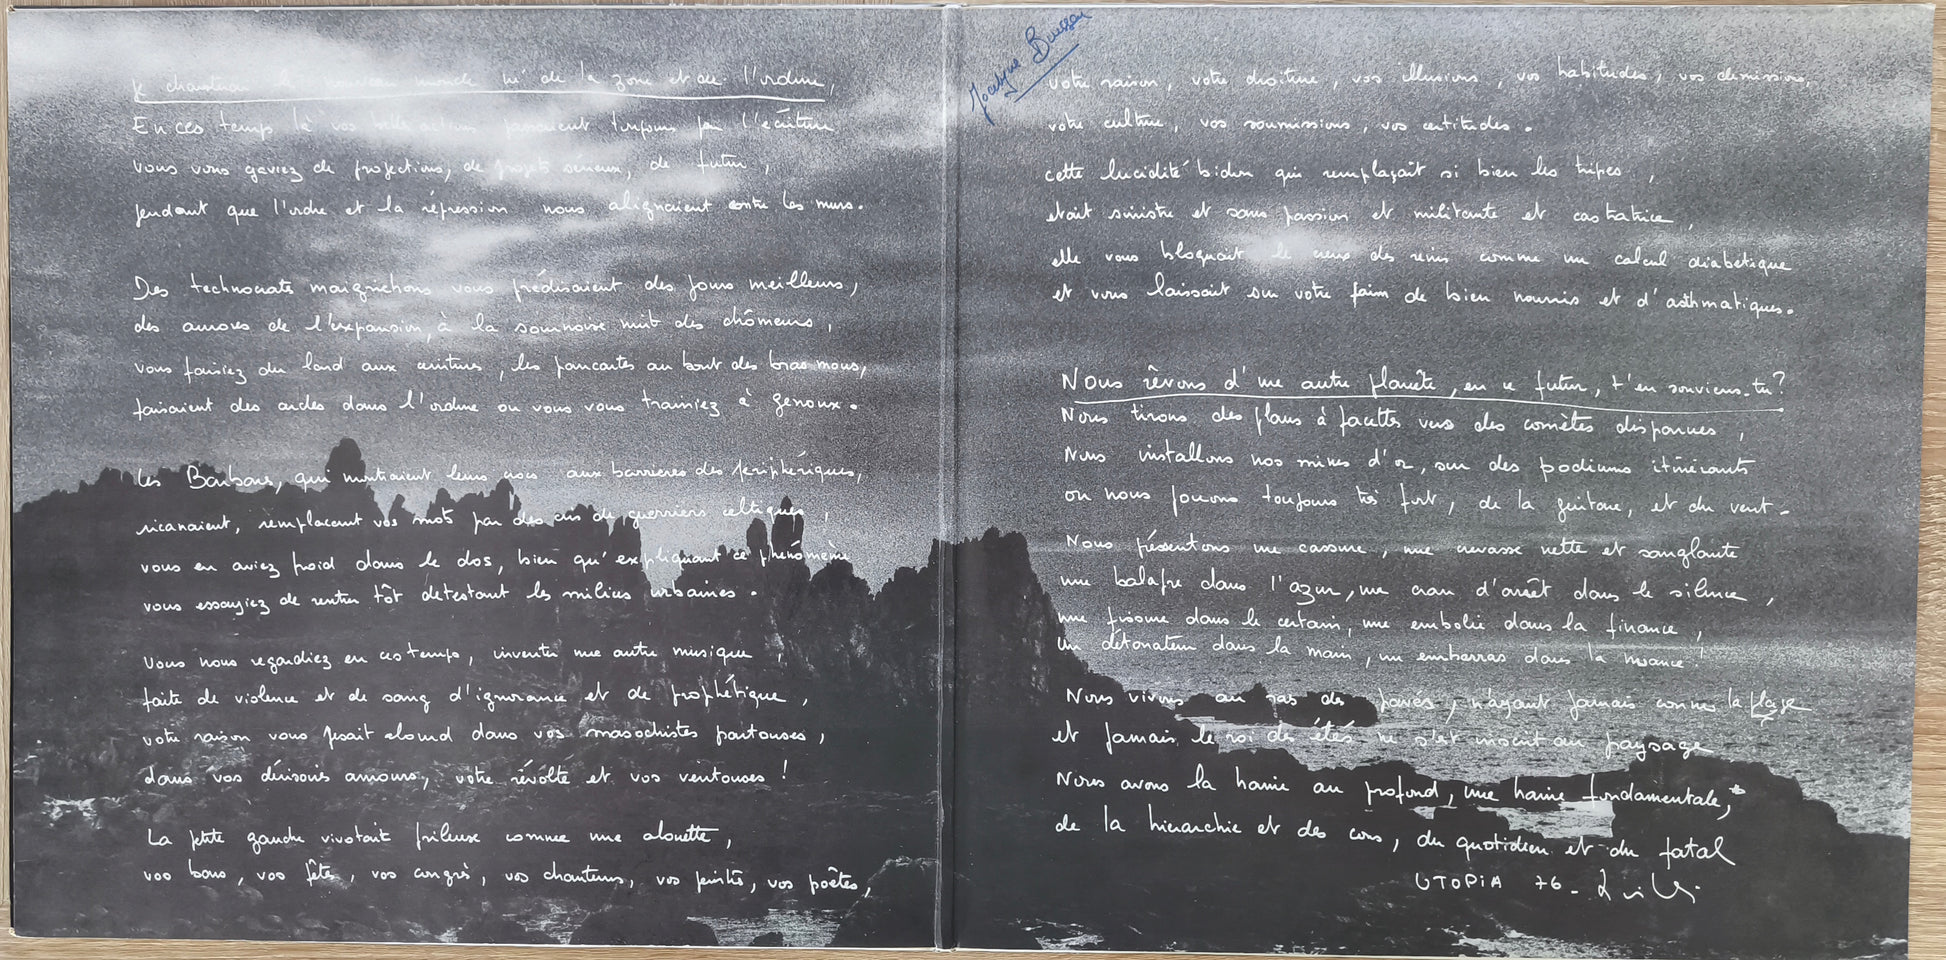 Je chanterai le nouveau monde né de la zone et de l'ordure,
En ces temps là vos belles actions passaient toujours par l'écriture
vous vous gaviez de projections, de projets sérieux, de futur,
pendant que l'ordre et la répression nous alignaient contre les murs.
Des technocrates maigrichons vous prédisaient des jours meilleurs,
des aurores de l'expansion, à la sournoise nuit des chômeurs,
vous faisiez du lard aux ceintures, les pancartes au bout des bras mous,
faisaient des arcs dans l'ordure ou vous vous trainiez à genoux.
Les Barbares, qui montraient leurs crocs aux barrières des périphériques,
ricanaient, remplacant vos mots par des cris de guerriers celtiques,
vous en aviez froid dans le dos, bien qu'expliquant ce phénomène
vous essayiez de rentrer tôt détestant les milieux urbaines.
Vous nous regardiez en ces temps, inventer une autre musique,
faite de violence et de sang d'ignorance et de prophétique,
votre raison vous pesait lourd dans vos masochistes partouses,
dans vos dérisoires amours, votre révolte et vos ventouses !
La petite gauche vivotait frileuse comme une alouette,
vos bars, vos fêtes, vos congrès, vos chanteurs, vos peintres, vos poêtes,
Jocelyne Buisson
votre raison, votre droiture, vos illusions, vos habitudes, vos démissions,
votre culture, vos soumissions, vos certitudes.
cette lucidité bidon qui remplaçait si bien les tripes,
etait sinistre et sans passion et militante et castratrice,
elle vous bloquait le creux des reins comme un calcul diabetique
et vous laissait sur votre faim de bien nourris et d'asthmatiques.
Nous rêvons d'une autre planète, en ce futur, t'en souviens-tu ?
Nous tirons des plans à facettes vers des comètes disparues,
Nous installons nos mines d'or, sur des podiums itinérants
ou nous jouons toujours très fort, de la guitare, et du vent.
Nous pressentons une cassure, une crevasse nette et sanglante
une balafre dans l'azur, une cran d'arrêt dans le silence,
une fissure dans le certain, une embolie dans la finance,
un détonateur dans la main, un embarras dans la nuance !
Nous vivons au ras des pavés, n'ayant jamais connu la plage
et jamais le roi des étés ne s'est inscrit au paysage
Nous avons la haine au profond, une haine fondamentale,
de la hiérarchie et des cons, du quotidien et du fatal
UTOPIA 76 -